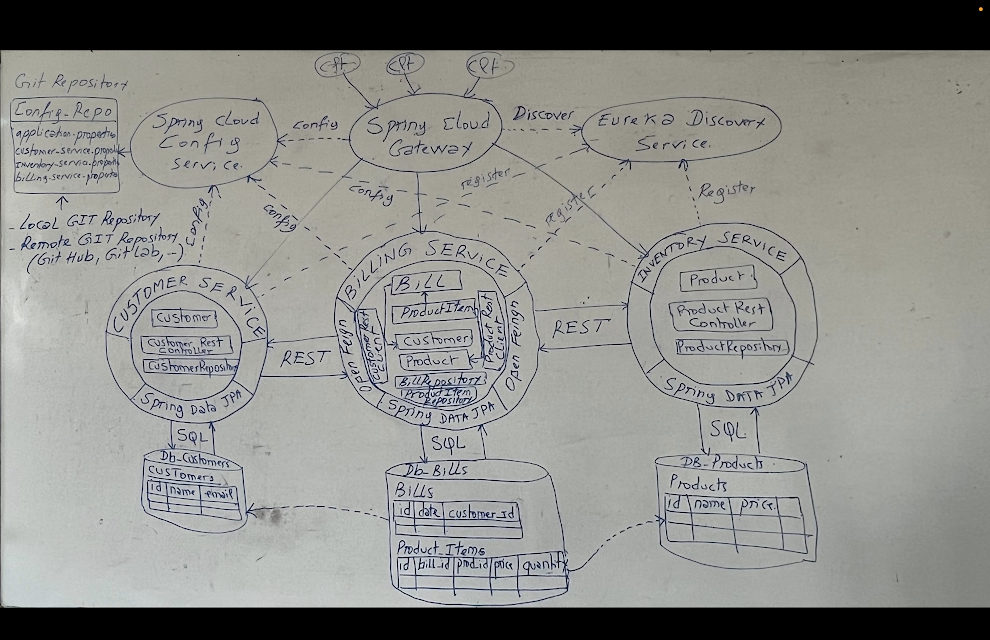 Git Repository
Config_Repo
application.properties
customer-service.prope
Inventory-service.prope
billing-service.prope
- Local GIT Repository
- Remote GIT Repository
(Git Hub, GitLab, --)
Spring cloud
Config
Service.
config
Spring Cloud
Gateway
Discover
Eureka Discovery
Service.
config
config
config
register
register
Register
CUSTOMER SERVICE
Customer
Customer Rest
Controller
CustomerRepository
Spring Data JPA
REST
BILLING SERVICE
Open Feign
CustomerRest
Client
Bill
ProductItem
Customer
Product
BillRepository
ProductItem
Repository
Product Rest
Client
Open Feingn
Spring DATA JPA
REST
INVENTORY SERVICE
Product
Product Rest
Controller
ProductRepository
Spring DATA JPA
SQL
Db-Customers
Customers
id name email
SQL
Db-Bills
Bills
id date customer_id
Product_Items
id bill_id prod_id price quantity
SQL
DB-Products
Products
id name price